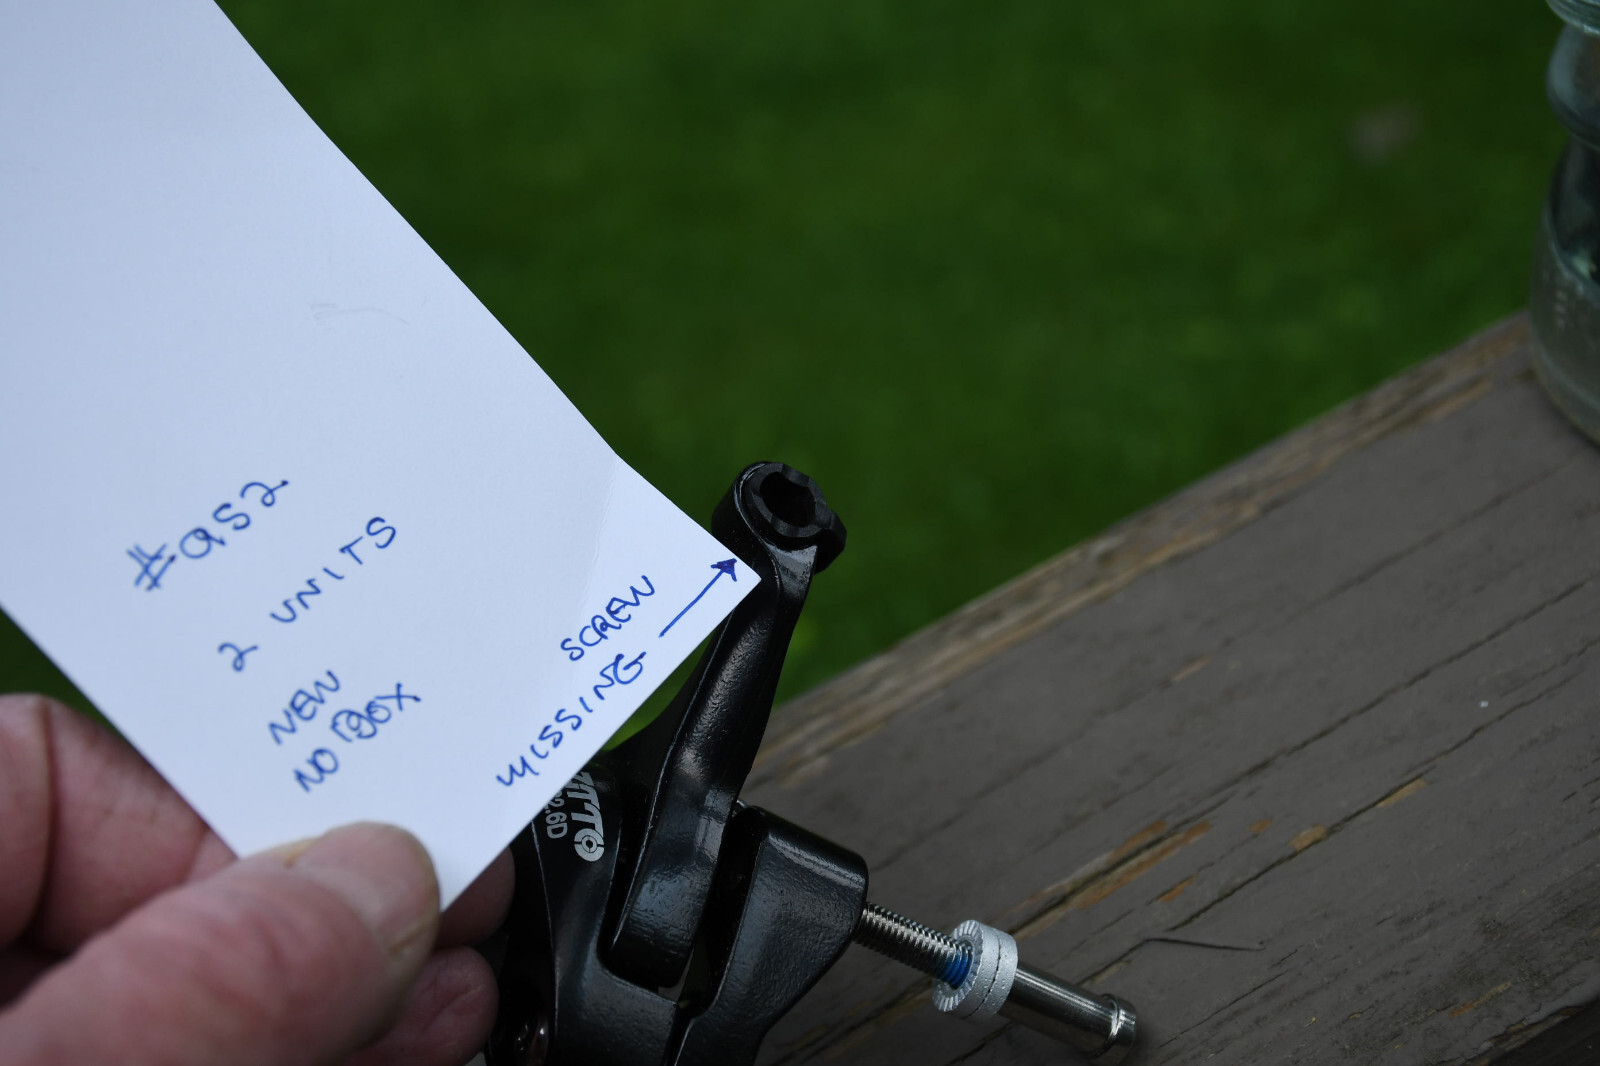 #952
2 UNITS
NEW
NO BOX
SCREW
MISSING
2.6D